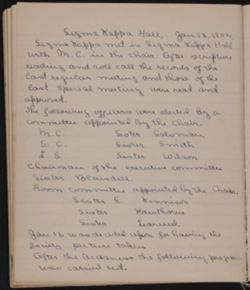 Sigma Kappa Hall, Jan 13, 18
Sigma Kappa met in Sigma Kappa Hall
with M. C. in the chair. After scripture
reading and roll call the records of the
last regular meeting and those of the
last special meeting were read and
approved.
The following officers were elected by a
committee appointed by the Chair.
M. C. Sister Salsman
S. C. Sister Smith
I. S. Sister Wilson
Chairman of the executive committee
Sister Blaisdell
Room committee appointed by the Chair.
Sister E. Kennison
Sister Hawthorne
Sister Learned
Jan 16 was decided upon for having the
Society picture taken
After the business the following program
was carried out.